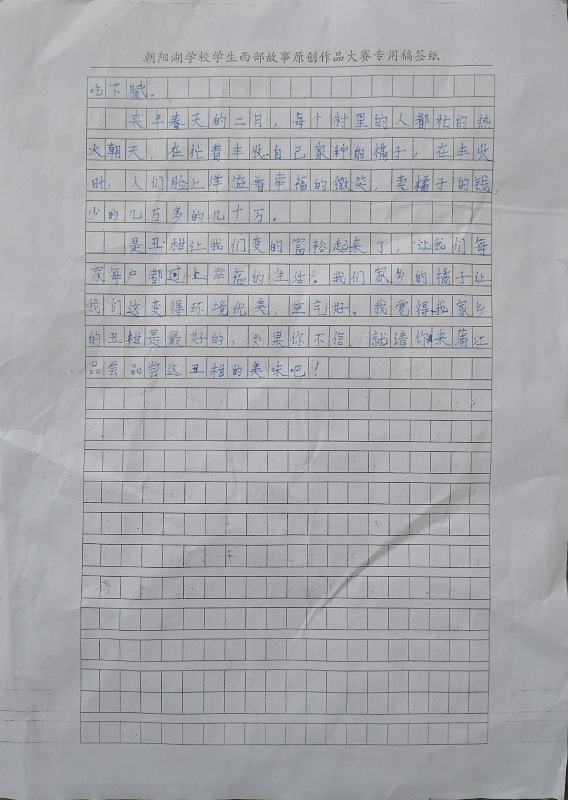 朝阳湖学校学生西部故事原创作品大赛专用稿签纸
吃不腻。
来年春天的二月，每个村里的人都忙的热
火朝天，在忙着丰收自己家种的橘子，在丰收
时，人们脸上洋溢着幸福的微笑，卖橘子的钱，
少的几万多的几十万。
是丑柑让我们变的富裕起来了，让我们每
家每户都过上幸福的生活。我们家乡的橘子让
我们这变得环境优美，空气好。我觉得我家乡
的丑柑是最好的，如果你不信，就请你来蒲江
品尝品尝这丑柑的美味吧！